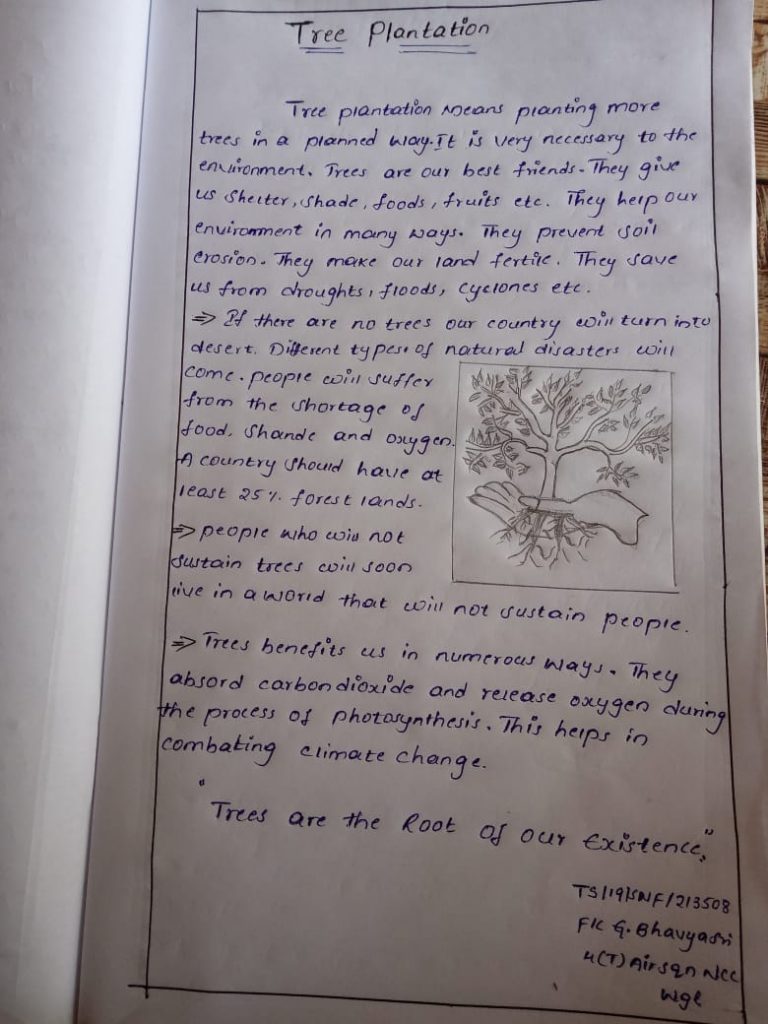 Tree Plantation
Tree plantation Means planting more
trees in a planned way. It is very necessary to the
environment. Trees are our best friends. They give
us shelter, shade, foods, fruits etc. They help our
environment in many ways. They prevent soil
erosion. They make our land fertile. They save
us from droughts, floods, cyclones etc.
⇒ If there are no trees our country will turn into
desert. Different types of natural disasters will
come. people will suffer
from the shortage of
food, Shande and oxygen.
A country should have at
least 25% forest lands.
⇒ people who will not
sustain trees will soon
live in a world that will not sustain people.
⇒ Trees benefits us in numerous ways. They
absord carbondioxide and release oxygen during
the process of photosynthesis. This helps in
combating climate change.
"Trees are the Root of our Existence."
TS/19/SNF/213508
F/C G. Bhavyasri
4(T) Air sqn NCC
Wgl